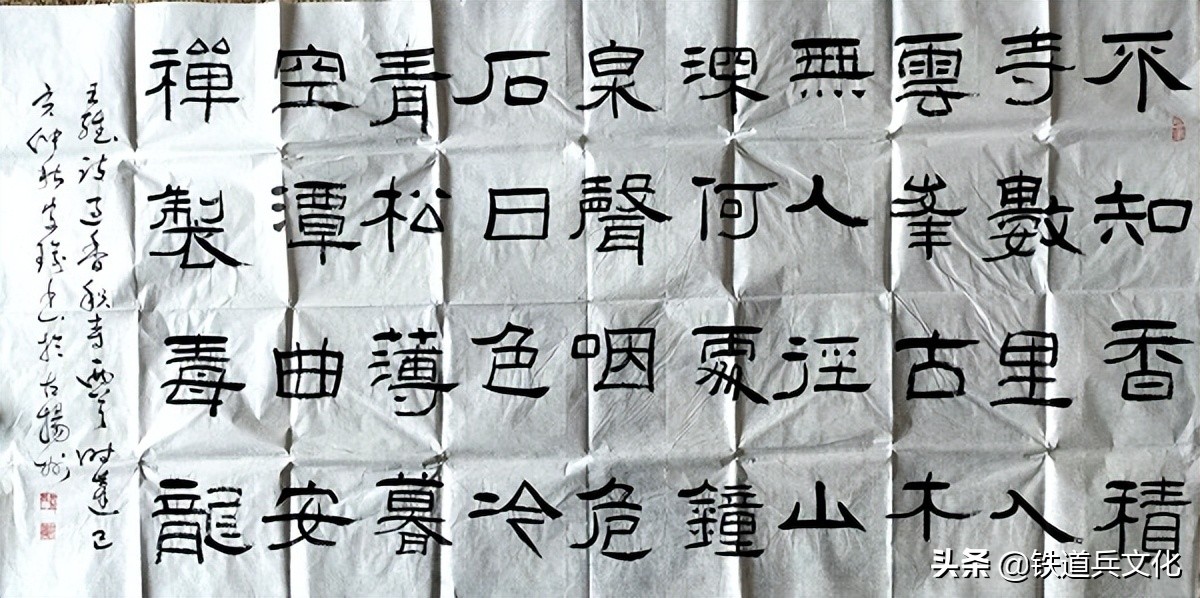 不知香積
寺數里入
雲峯古木
無人徑山
深何處鐘
泉聲咽危
石日色冷
青松薄暮
空潭曲安
禪製毒龍
王維詩過香积寺 时達己
亥仲秋 书於古揚州
头条 @铁道兵文化